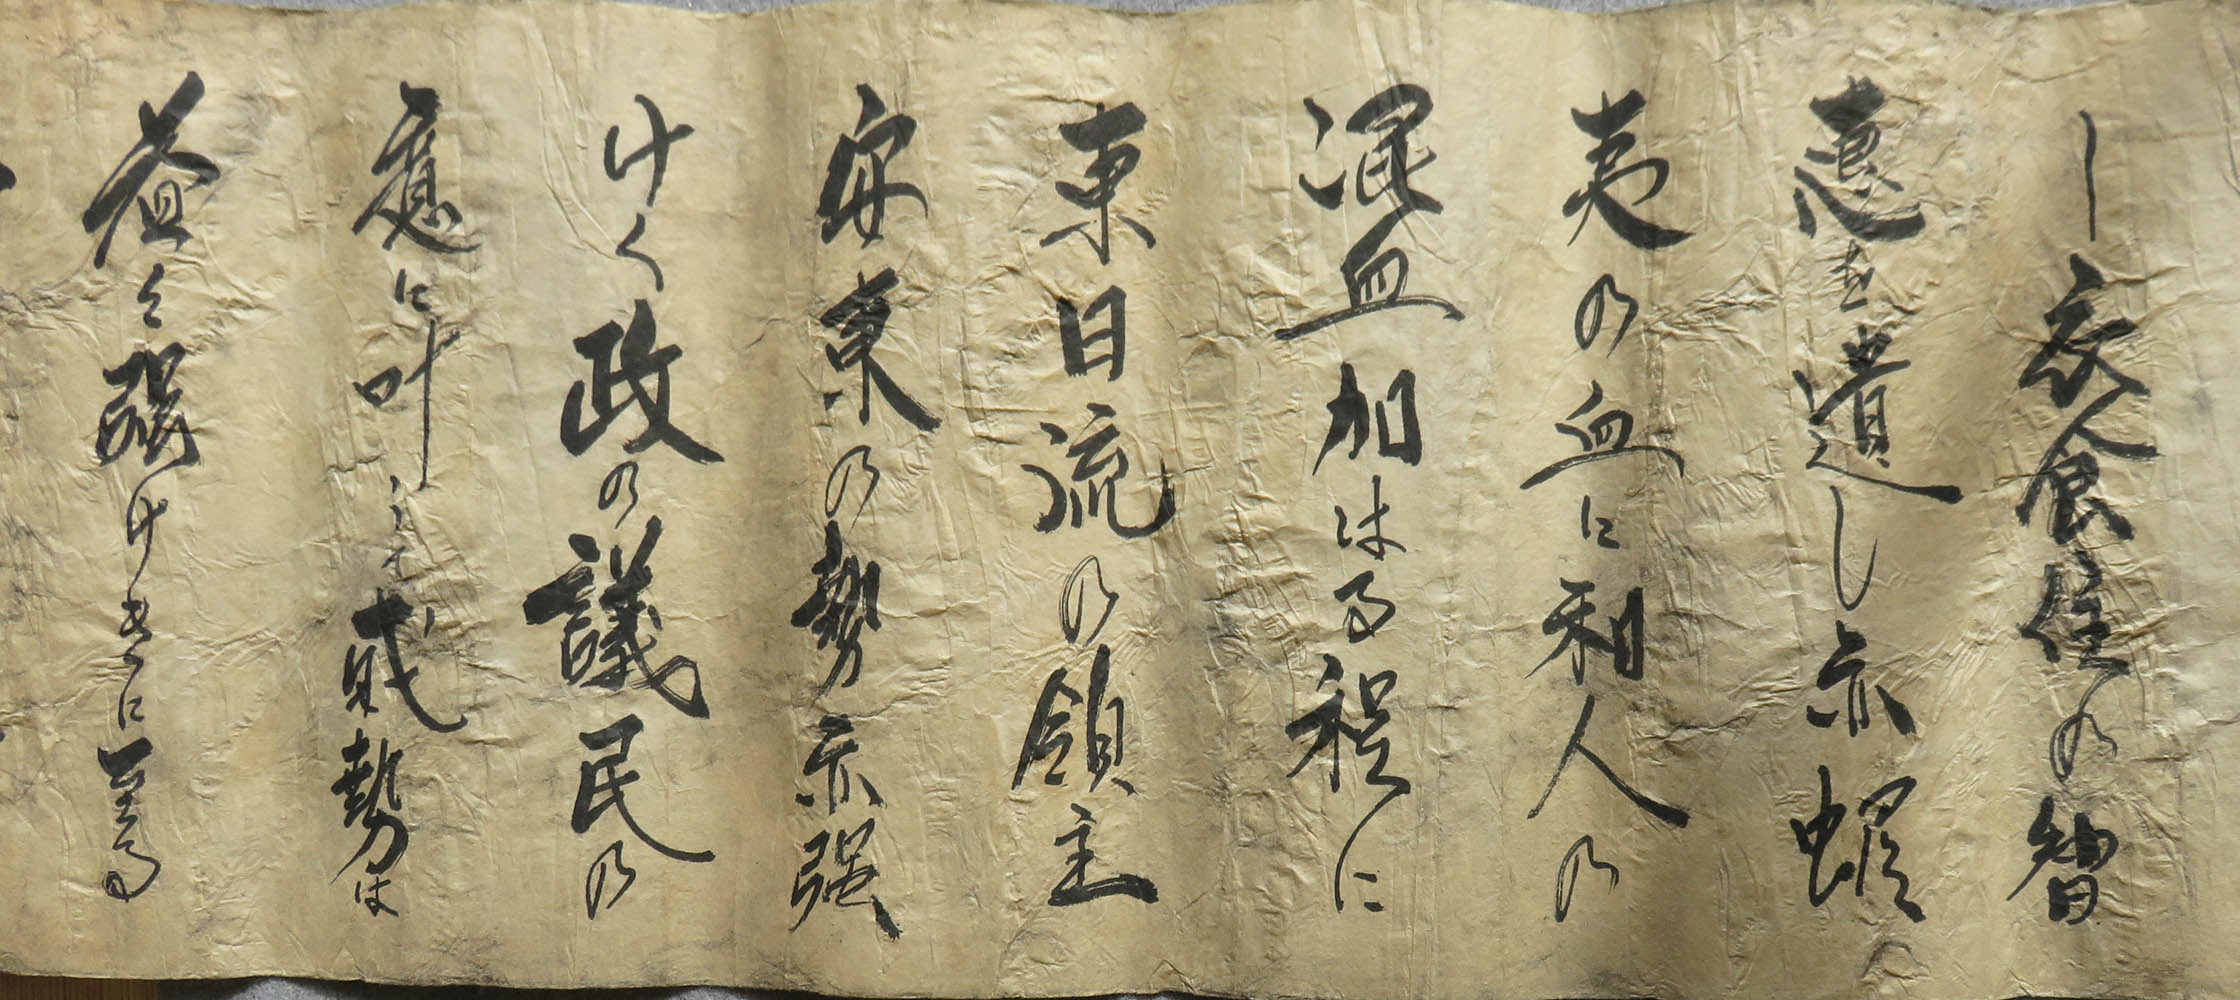 し衣食住の智
恵を遺し亦蝦
夷の血に和人の
混血加はる程に
東日流の領主
安東の勢亦強
けく政の議民の
意に叶ふて貮勢は
益々張けきに至る